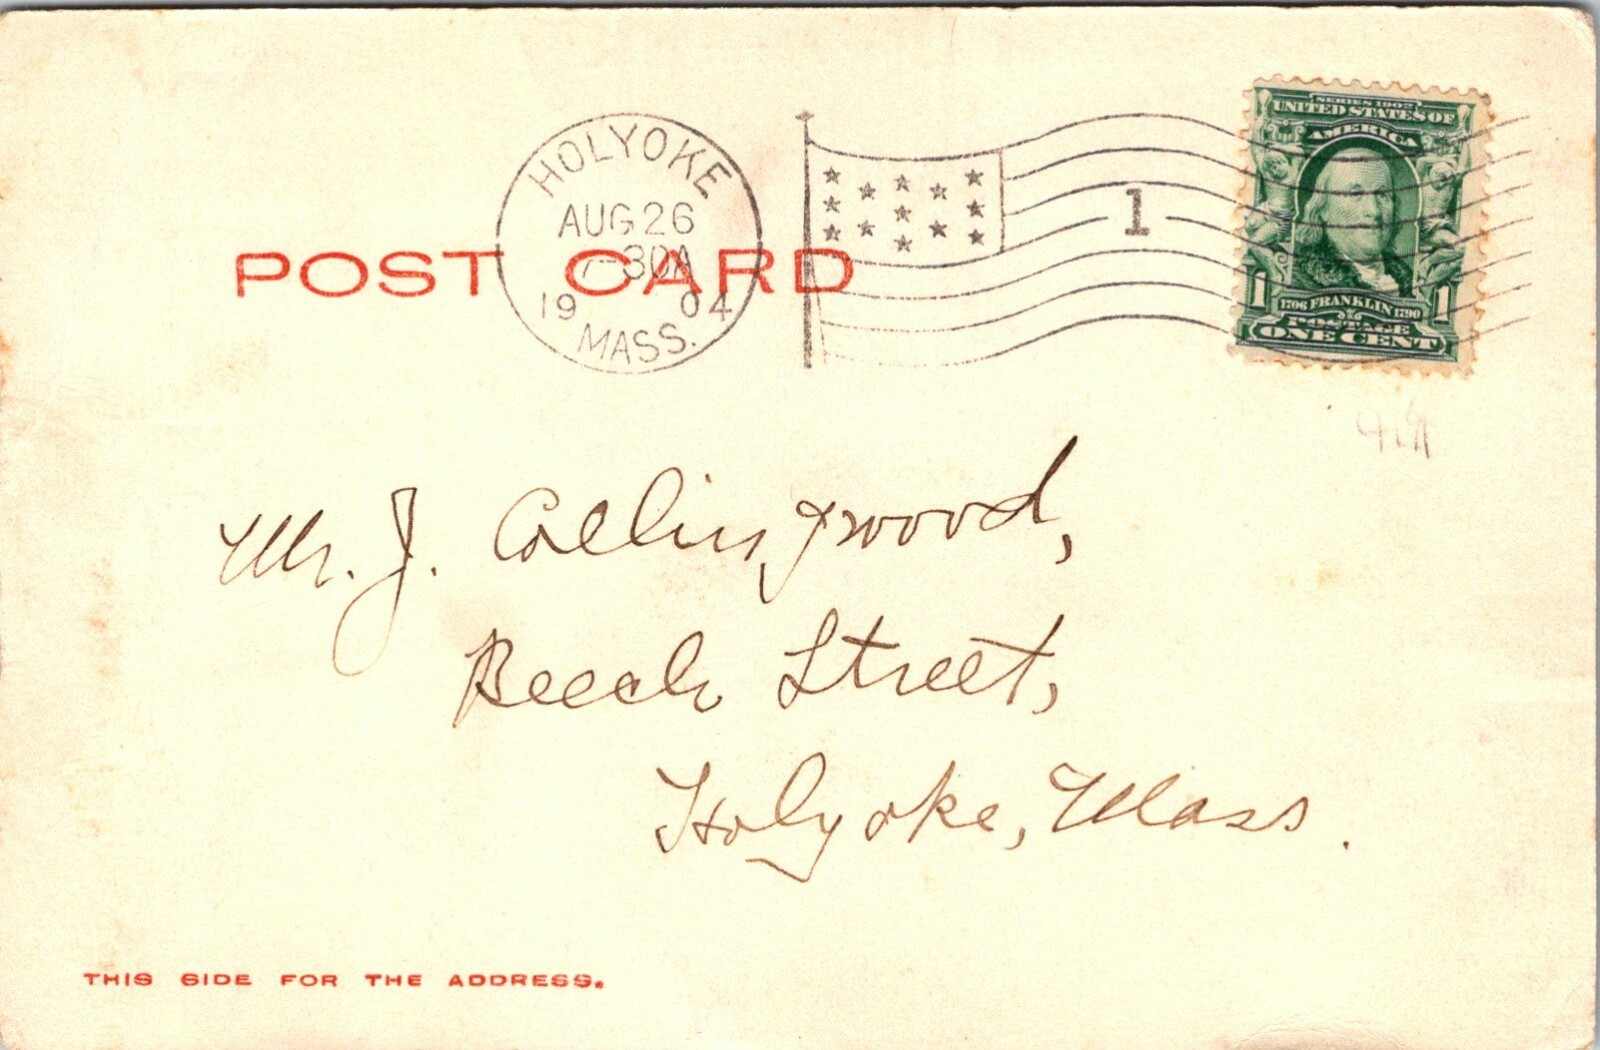 HOLYOKE
AUG 26
7-30A
19 04
MASS.
1
SERIES 1902
UNITED STATES OF
AMERICA
1 1706 FRANKLIN 1790 1
POSTAGE
ONE CENT
POST CARD
Mr. J. Collingwood,
Beech Street,
Holyoke, Mass.
THIS SIDE FOR THE ADDRESS.